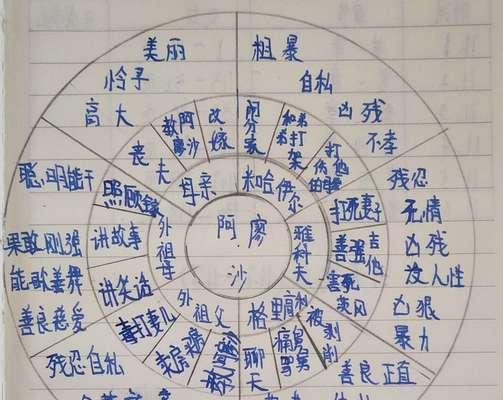 美丽
粗暴
怜子
自私
高大
教阿廖沙
改嫁
闹分家
和弟弟打架
凶残
不孝
丧夫
母亲
米哈伊尔
聪明能干
照顾
残忍
打死妻子
无情
阿廖沙
外祖母
雅科夫
果敢刚强
讲故事
凶残
能歌善舞
没人性
讲笑话
害死茨冈
善良慈爱
外祖父
格里戈利
被剥削
凶狠
毒打妻儿
暴力
残忍自私
卖房
聊天
痛骂舅舅
善良正直